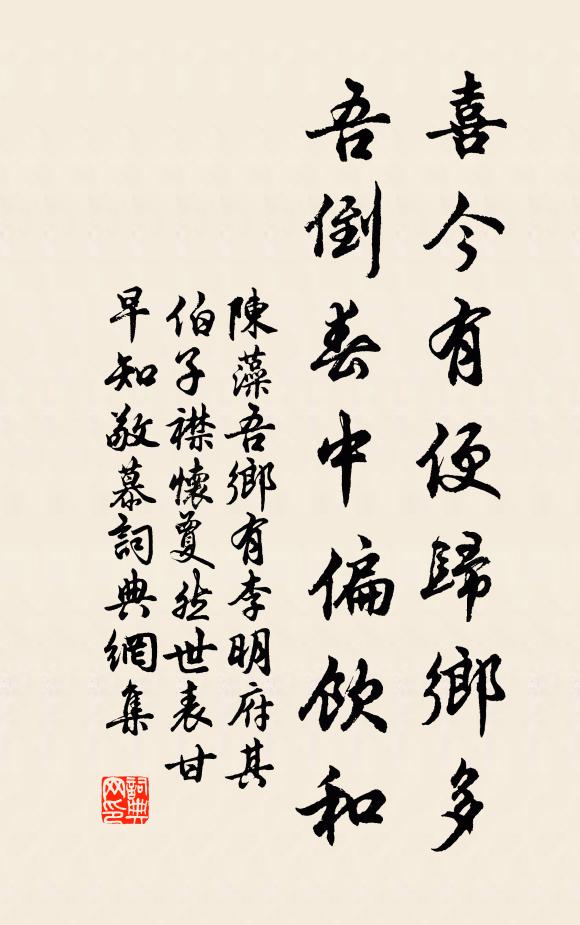 喜今有便歸鄉多
吾倒壽中偏飲和
陳藻吾鄉有李明府其
伯子襟懷夐然世表甘
早知敬慕詞典網集
詞典網印